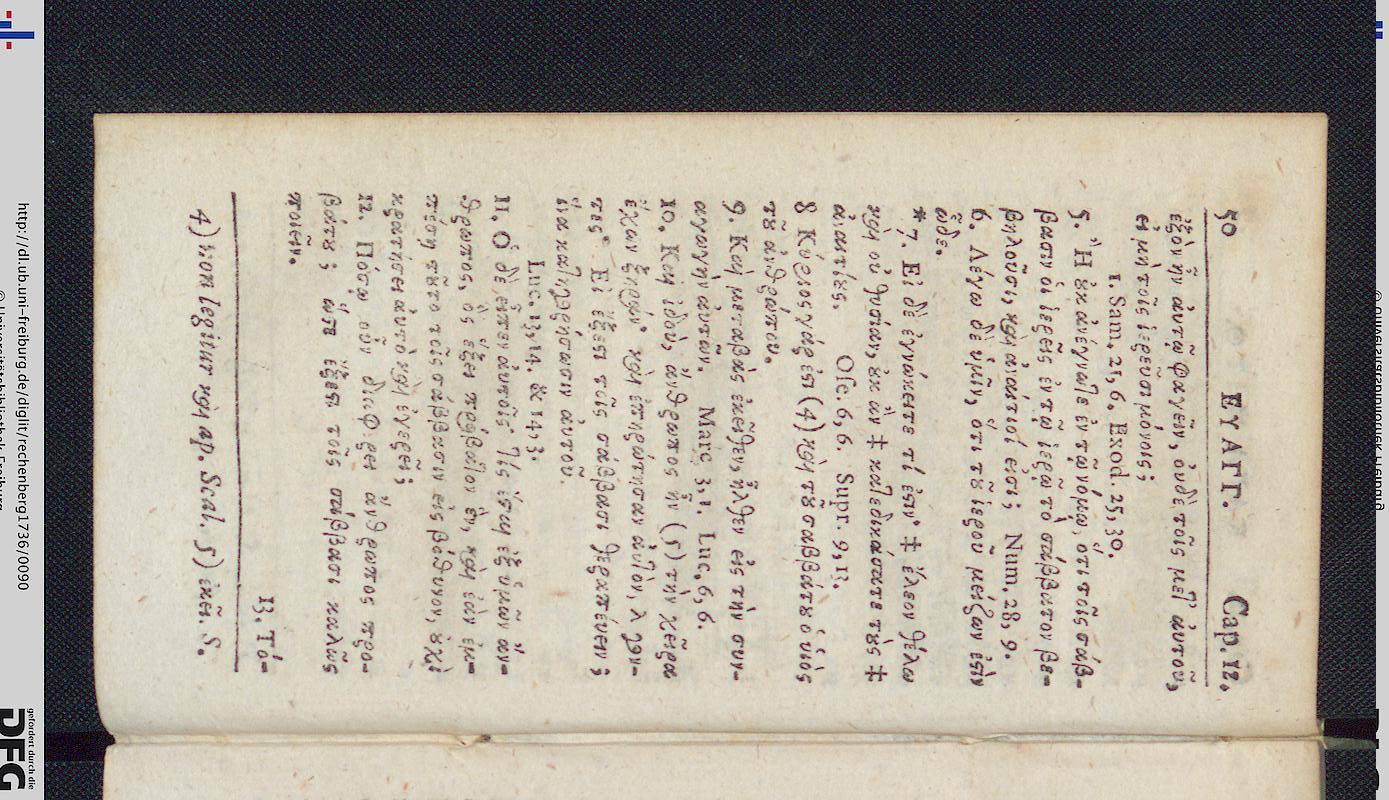 50 ΕΥΑΓΓ. Cap. 12.
ἐξὸν ἦν ἀυτῷ φαγεῖν, ὀυδὲ τοῖς μετ' ἀυτοῦ,
εἰ μὴ τοῖς ἱερεῦσι μόνοις;
1. Sam. 21, 6. Exod. 25, 30.
5. Ἢ ἐκ ἀνέγνωτε ἐν τῷ νόμῳ, ὅτι τοῖς σάβ-
βασιν ὁι ἱερεῖς ἐν τῷ ἱερῷ τὸ σάββατον βε-
βηλοῦσι, καὶ ἀναίτιοί εἰσι; Num. 28, 9.
6. Λέγω δὲ ὑμῖν, ὅτι τȣ ἱεροῦ μείζων ἐστὶν
ὧδε.
* 7. Εἰ δὲ ἐγνώκειτε τί ἐστιν· ‡ ἔλεον θέλω
καὶ οὐ θυσίαν, ȣκ ἂν ‡ κατεδικάσατε τȣς ‡
ἀναιτίȣς. Ose. 6, 6. Supr. 9, 13.
8 Κύριος γάρ ἐστι (4) καὶ τȣ σαββάτȣ ὁ υἱὸς
τȣ ἀνθρώπου.
9 Καὶ μεταβὰς ἐκεῖθεν, ἦλθεν εἰς τὴν συν-
αγωγὴν ἀυτῶν. Marc. 3, 1. Luc, 6, 6.
10. Καὶ ἰδοὺ, ἄνθρωπος ἦν (5) τὴν χεῖρα
ἔχων ξηράν· καὶ ἐπηρώτησαν ἀυτὸν, λέγον-
τες· Εἰ ἔξεστι τοῖς σάββασι θεραπέυειν;
ἵνα κατηγορήσωσιν ἀυτοῦ.
Luc. 13, 14. & 14, 3.
11. Ὁ δὲ εἶπεν ἀυτοῖς· Τίς ἔσται ἐξ ὑμῶν ἄν-
θρωπος, ὃς ἕξει πρόβατον ἓν, καὶ ἐὰν ἐμ-
πέσῃ τȣτο τοῖς σάββασιν εἰς βόθυνον, ȣχὶ
κρατήσει ἀυτὸ καὶ ἐγερεῖ;
12. Πόσῳ οὖν διαφέρει ἄνθρωπος προ-
βάτȣ; ὥστε ἔξεστι τοῖς σάββασι καλῶς
ποιεῖν.
13. Τό-
4) non legitur καὶ ap. Scal. 5) ἐκεῖ. S.
http://dl.ub.uni-freiburg.de/diglit/rechenberg1736/0090
© Universitätsbibliothek Freiburg
gefördert durch die
DFG